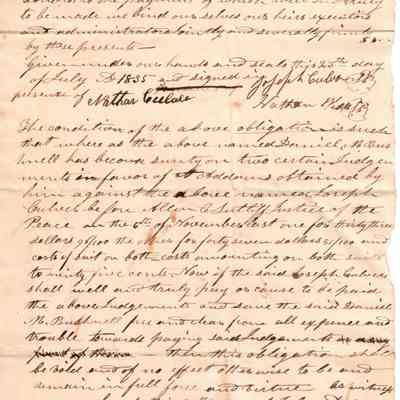 to be made we bind our selves our heirs executors
and administrators jointly and severally firmly
by these presents —
Given under our hands and seals this 25th day
of July 1835 and signed in Joseph
presence of Nathan
The condition of the above obligation is such
that where as the above named Daniel M. Bus
hnell has become surety on two certain Judge
ments in favor of Addoms obtained by
him against the above named Joseph
before Allen C Sutliff Justice of the
Peace on the 5th of November last one for thirty three
dollars 91/100 the other for forty seven dollars 51/100 and
costs of suit on both costs amounting on both suits
to ninety five cents Now if the said Joseph
shall well and truly pay or cause to be paid
the above Judgements and save the said Daniel
M. Bushnell free and clear from all expence and
trouble towards paying said Judgements or any
part of them then this obligation shall
be void and of no effect otherwise to be and
remain in full force and virtue as witness